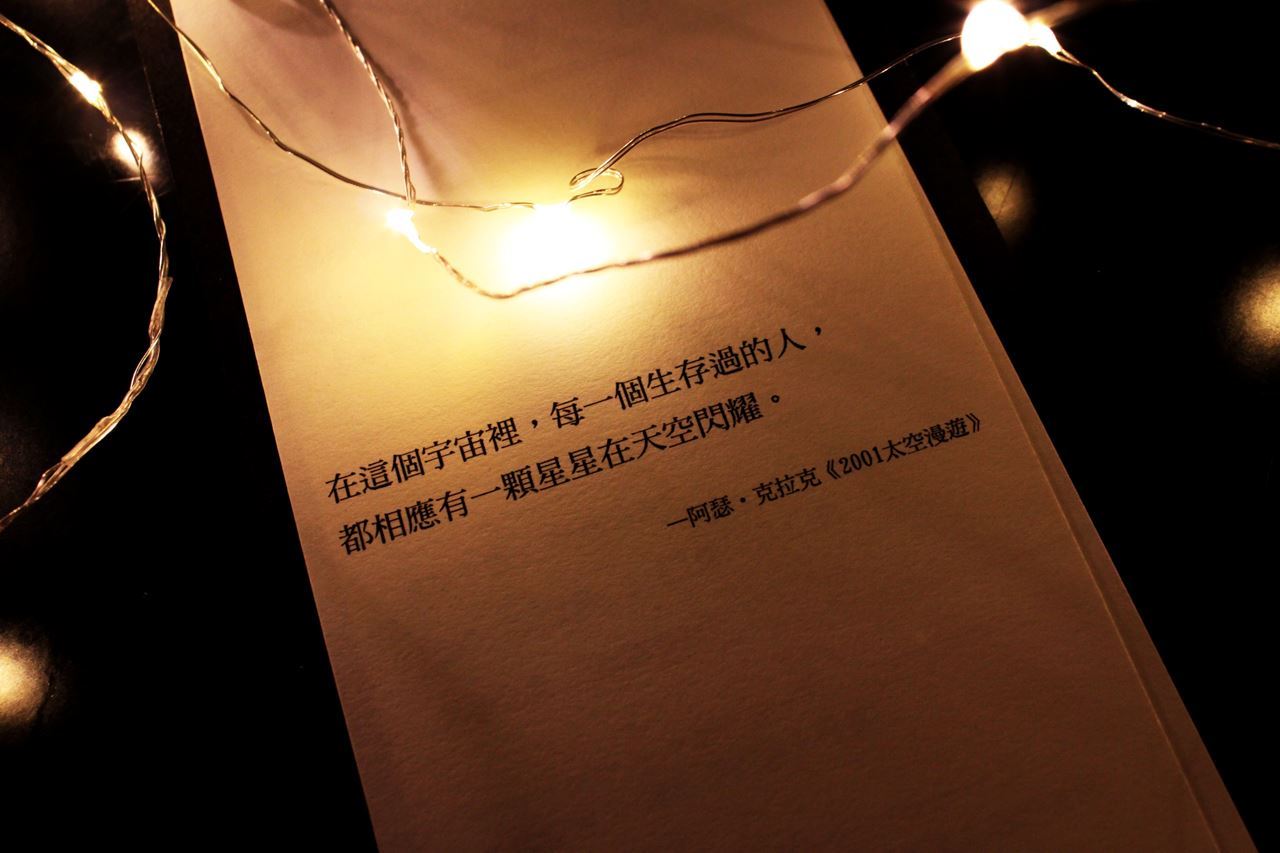 在這個宇宙裡，每一個生存過的人，
都相應有一顆星星在天空閃耀。
—阿瑟・克拉克《2001太空漫遊》